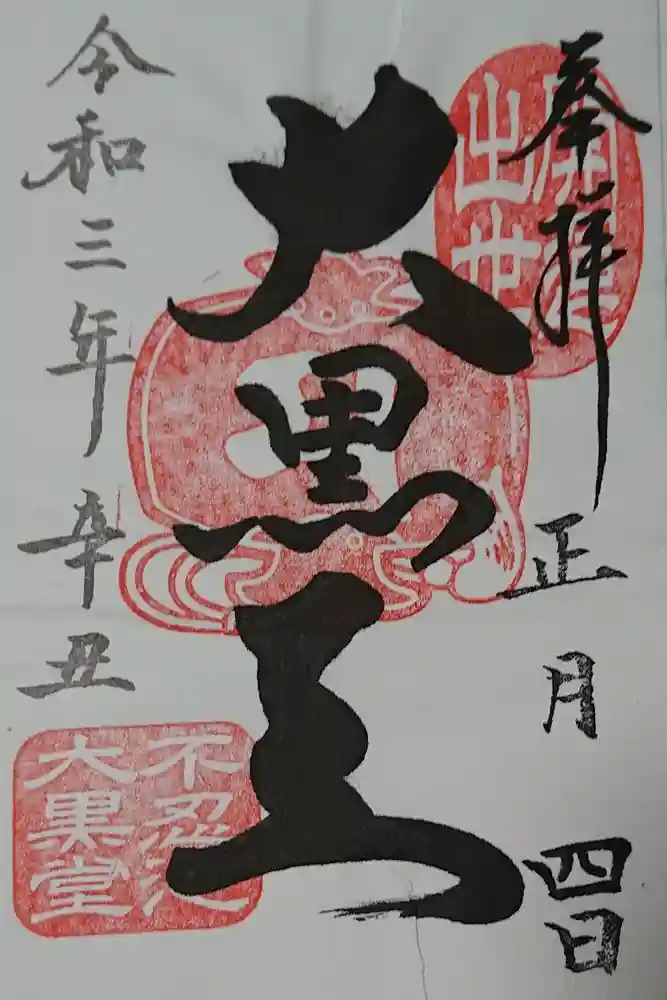 奉拝
正月四日
開運
出世
大黒王
令和三年辛丑
不忍池
大黒堂